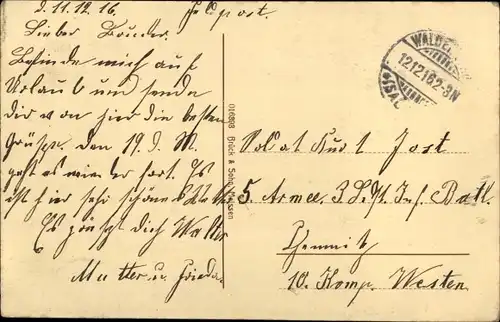 d. 11.12.16
Feldpost.
Lieber Bruder.
Befinde mich auf
Urlaub und sende
dir von hier die besten
Grüsse. Den 19. d. M.
geht es wieder fort. Es
ist hier sehr schönes
Es grüsst dich Walter
Mutter u. Frieda
016868 Brück & Sohn, Meissen
WALDE
12.12.16. 2-3N
Soldat Kurt Jost
5. Armee. 3. Inf. Batl.
Chemnitz
10. Komp. Westen